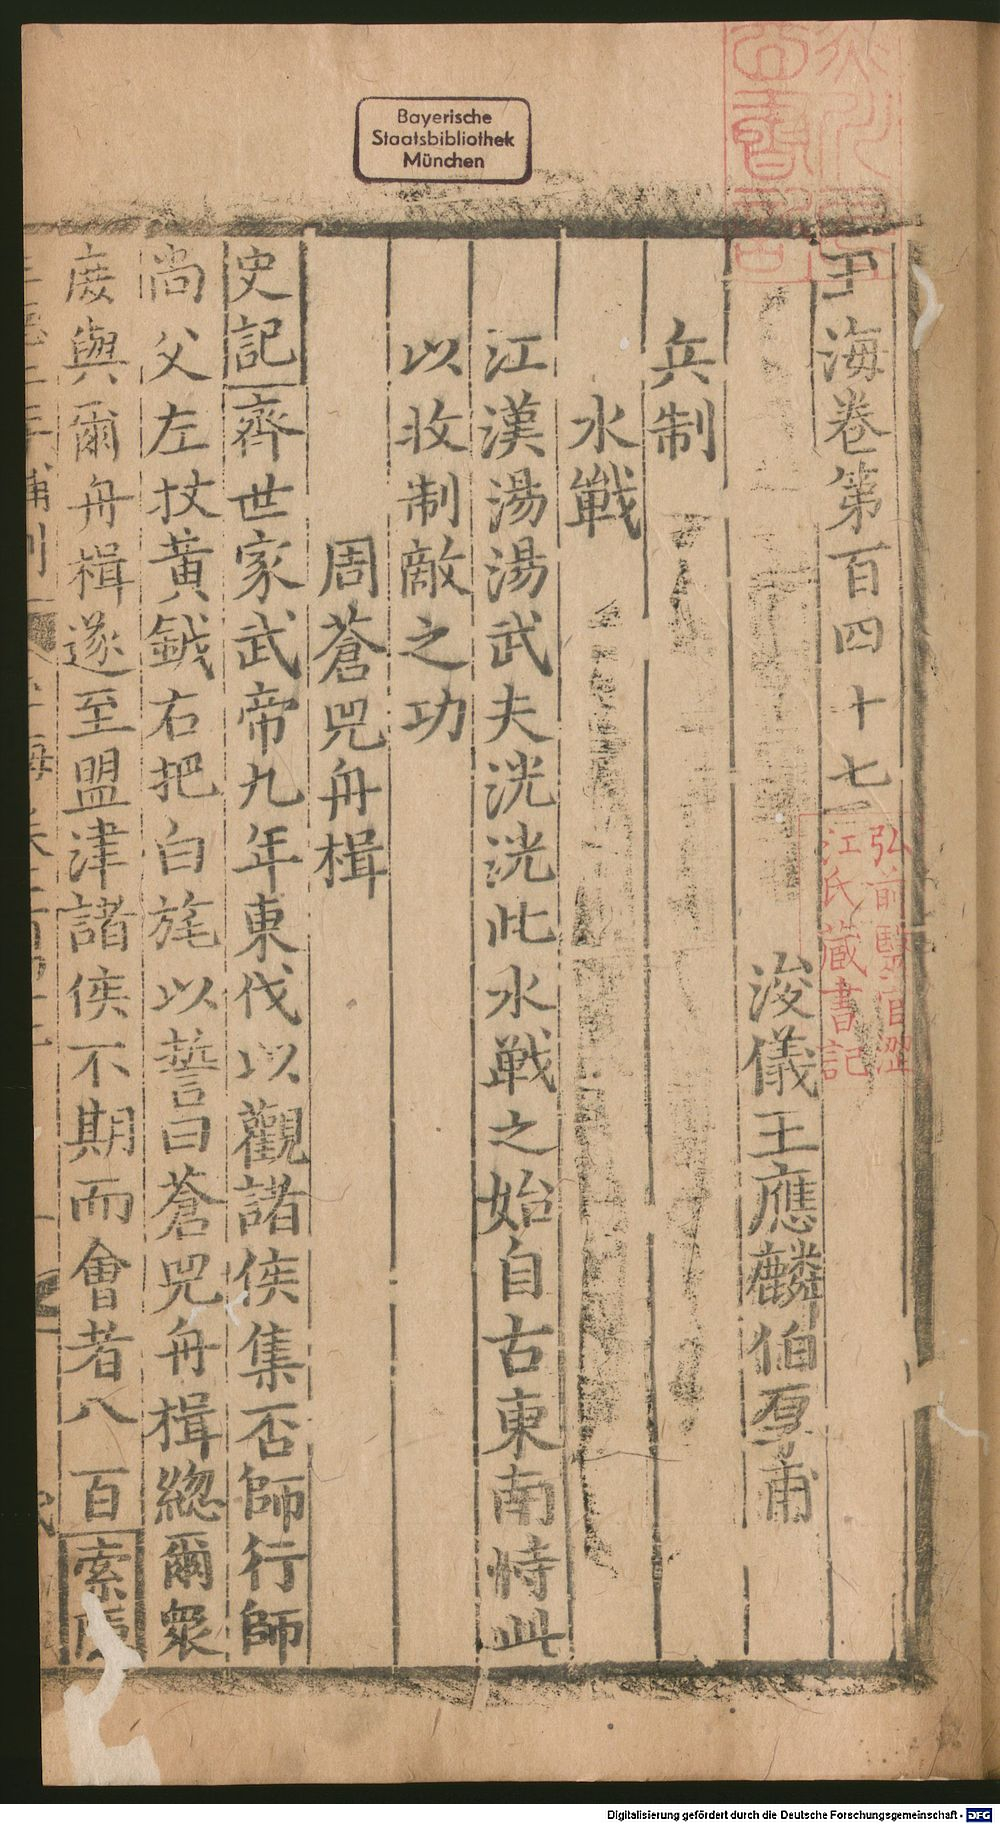 Bayerische
Staatsbibliothek
München
玉海卷第百四十七
浚儀王應麟伯厚甫
兵制
水戰
江漢湯湯武夫洸洸此水戰之始自古東南恃此
以收制敵之功
周蒼兕舟楫
史記齊世家武帝九年東伐以觀諸侯集否師行師
尚父左杖黃鉞右把白旄以誓曰蒼兕舟楫緫爾衆
庋與爾舟楫遂至盟津諸侯不期而會者八百索
弘前醫官澀
江氏藏書記
Digitalisierung gefördert durch die Deutsche Forschungsgemeinschaft - DFG